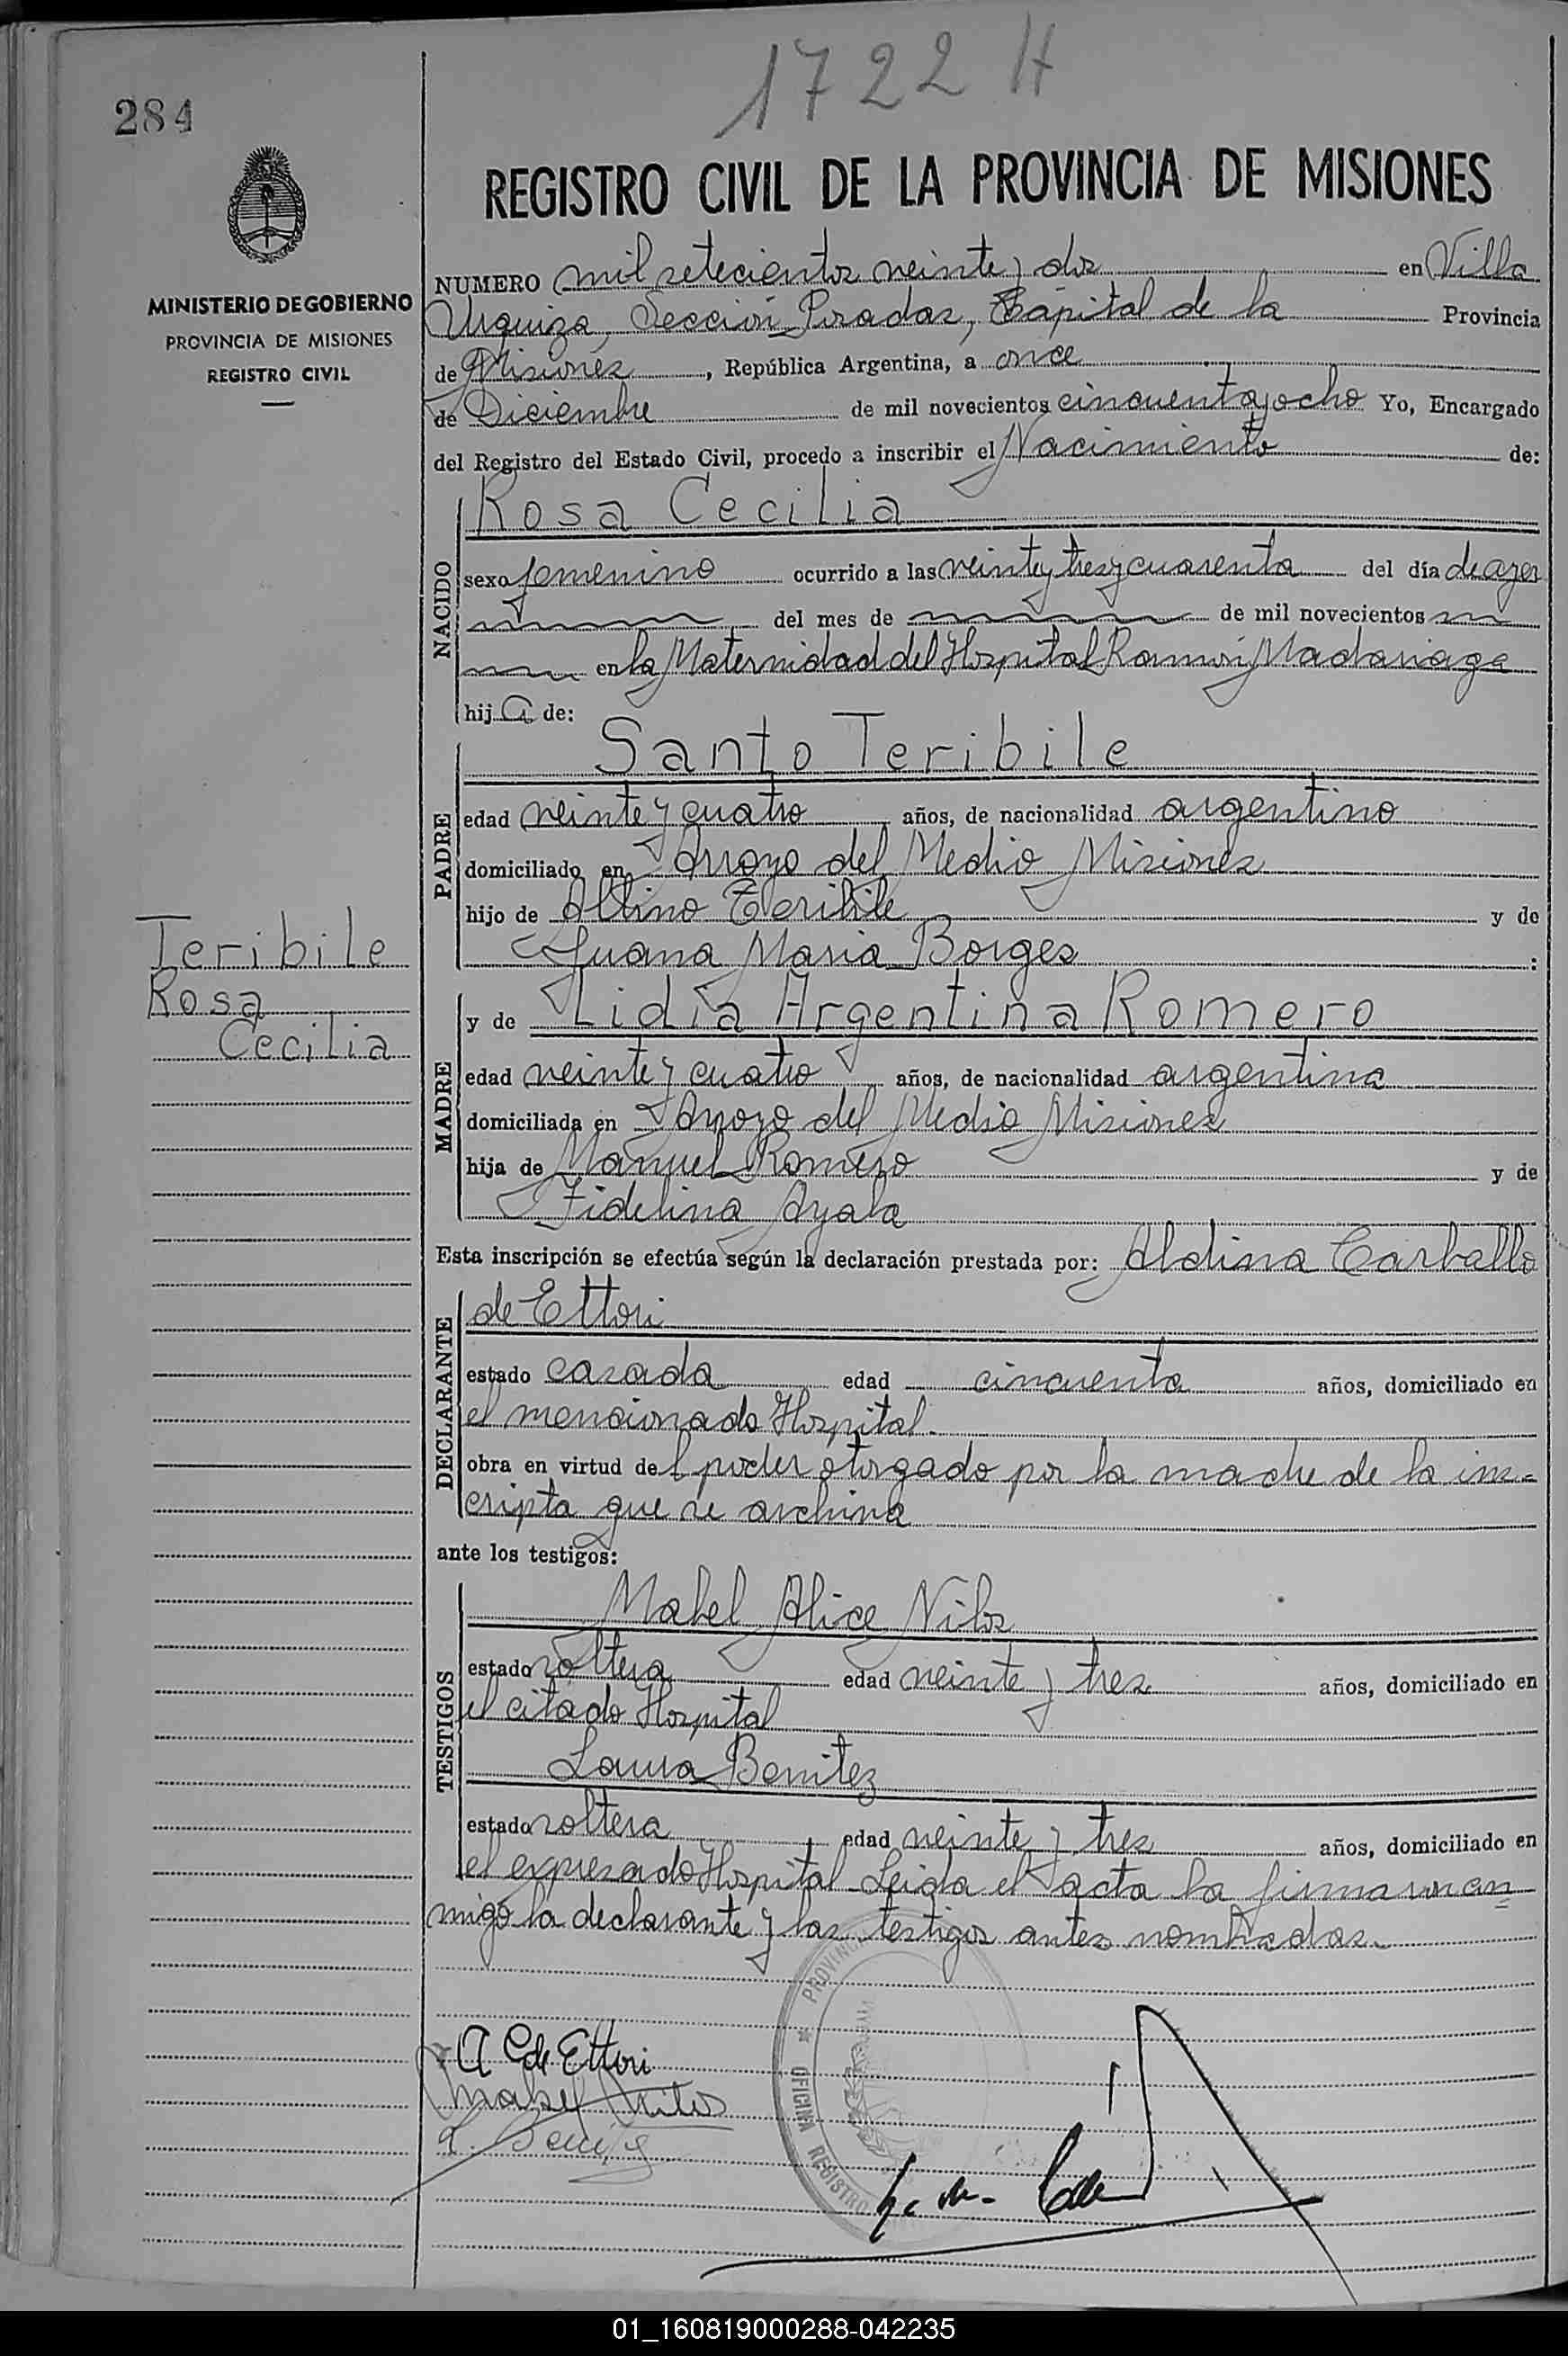 1722 H
284
REGISTRO CIVIL DE LA PROVINCIA DE MISIONES
MINISTERIO DE GOBIERNO
PROVINCIA DE MISIONES
REGISTRO CIVIL
NUMERO mil setecientos veinte y dos en Villa
Urquiza, Sección Posadas, Capital de la Provincia
de Misiones, República Argentina, a once
de Diciembre de mil novecientos cincuenta y ocho Yo, Encargado
del Registro del Estado Civil, procedo a inscribir el Nacimiento de:
NACIDO
Rosa Cecilia
sexo femenino ocurrido a las veinte y tres y cuarenta del día de ayer
del mes de de mil novecientos
en la Maternidad del Hospital Ramón Madariaga
hija de:
PADRE
Santo Teribile
edad veinte y cuatro años, de nacionalidad argentino
domiciliado en Arroyo del Medio Misiones
hijo de Albino Teribile y de
Juana Maria Borges :
Teribile
Rosa
Cecilia
MADRE
y de Lidia Argentina Romero
edad veinte y cuatro años, de nacionalidad argentina
domiciliada en Arroyo del Medio Misiones
hija de Manuel Romero y de
Fidelina Ayala
Esta inscripción se efectúa según la declaración prestada por: Aldina Carballo
DECLARANTE
de Ettori
estado casada edad cincuenta años, domiciliado en
el mencionado Hospital.
obra en virtud del poder otorgado por la madre de la ins-
cripta que se archiva
ante los testigos:
TESTIGOS
Mabel Alice Nilos
estado soltera edad veinte y tres años, domiciliado en
el citado Hospital
Laura Benitez
estado soltera edad veinte y tres años, domiciliado en
el expresado Hospital Leida el acta la firma con
migo la declarante y las testigos antes nombradas.
PROVINCIA
OFICINA REGISTRO
A C de Ettori
Mabel Nilos
L. Benitez
01_160819000288-042235